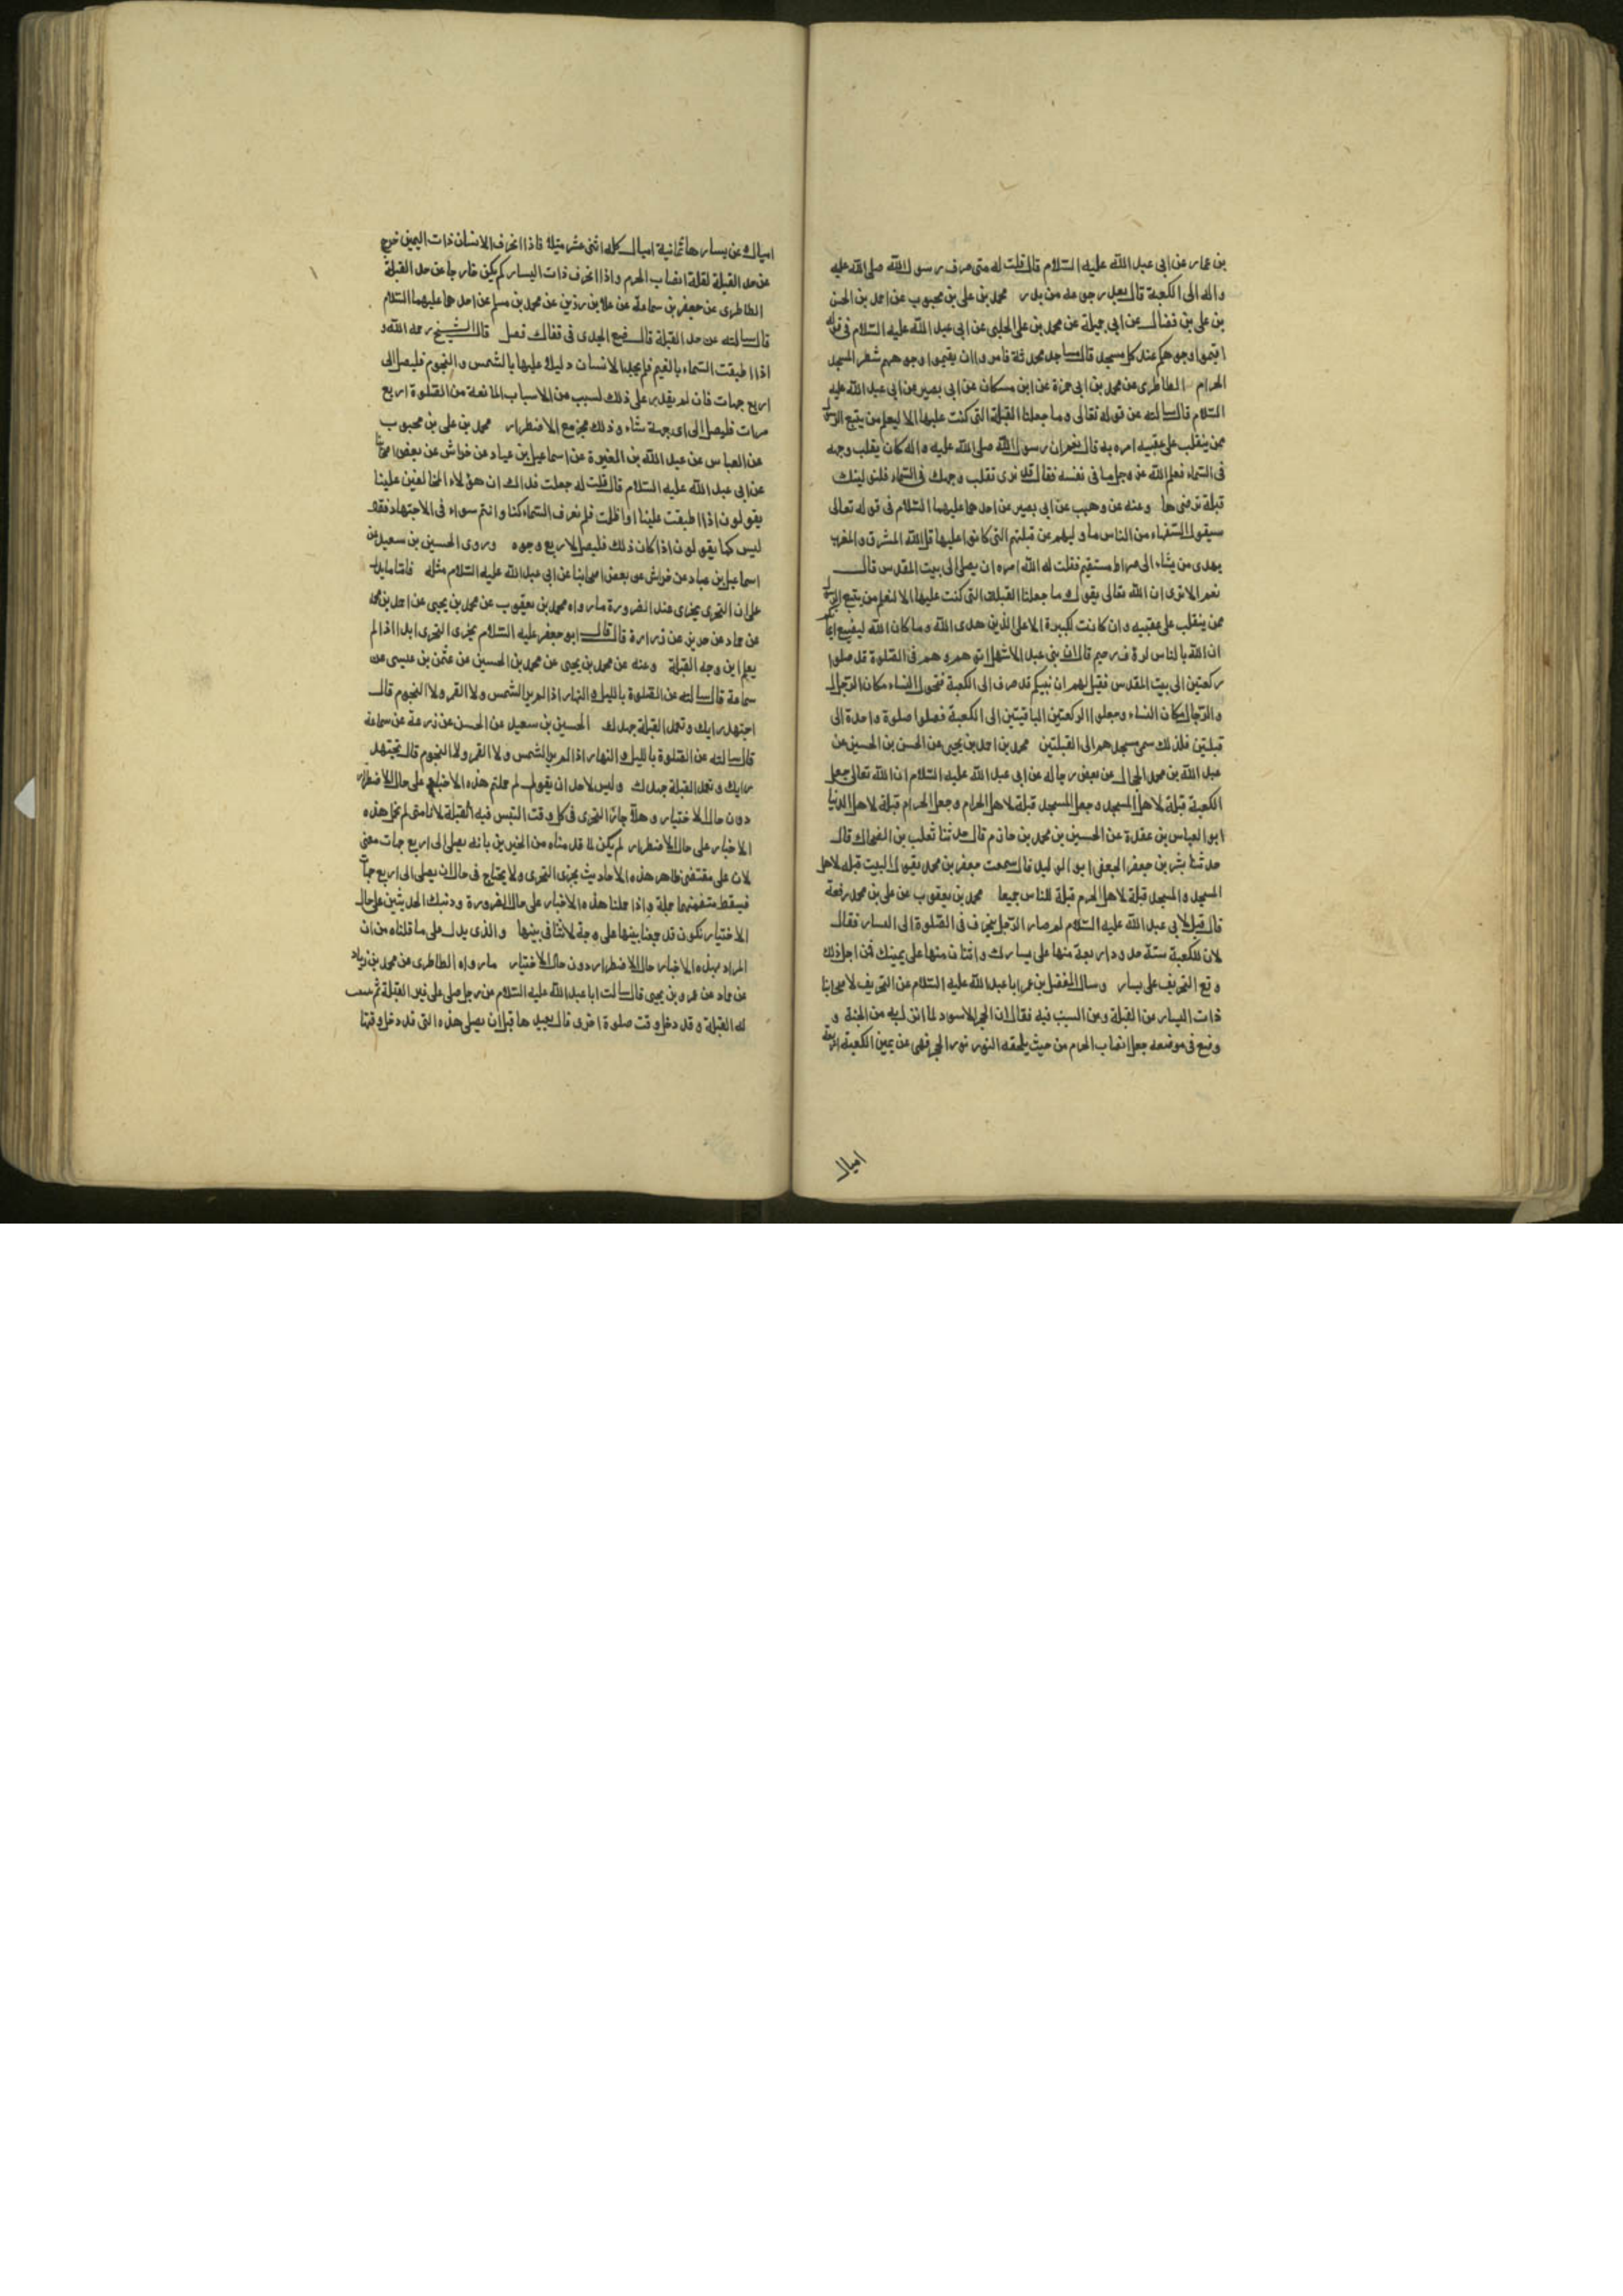 بن عمار عن ابى عبد الله عليه السلام قال قلت له متى صرف رسول الله صلى الله عليه
واله الى الكعبة قال بعد رجوعه من بدر محمد بن على بن محبوب عن احمد بن الحسن
بن على بن فضال عن ابى جميلة عن محمد بن على الحلبى عن ابى عبد الله عليه السلام فى قوله
اقيموا وجوهكم عند كل مسجد قال مساجد محدثة فامروا ان يقيموا وجوههم شطر المسجد
الحرام الطاطرى عن محمد بن ابى حمزة عن ابن مسكان عن ابى بصير عن ابى عبد الله عليه
السلام قال سالته عن قوله تعالى وما جعلنا القبلة التى كنت عليها الا ليعلم من يتبع الرسول
ممن ينقلب على عقبيه امره به قال نعم ان رسول الله صلى الله عليه واله كان يقلب وجهه
فى السماء فعلم الله عز وجل ما فى نفسه فقال قد نرى تقلب وجهك فى السماء فلنولينك
قبلة ترضيها وعنه عن وهيب عن ابى بصير عن احدهما عليهما السلام فى قوله تعالى
سيقول السفهاء من الناس ما وليهم عن قبلتهم التى كانوا عليها قل لله المشرق والمغرب
يهدى من يشاء الى صراط مستقيم فقلت له الله امره ان يصلى الى بيت المقدس قال
نعم الا ترى ان الله تعالى يقول وما جعلنا القبلة التى كنت عليها الا لنعلم من يتبع الرسول
ممن ينقلب على عقبيه وان كانت لكبيرة الا على الذين هدى الله وما كان الله ليضيع ايمانكم
ان الله بالناس لرؤف رحيم قال ان بنى عبد الاشهل اتوهم وهم فى الصلوة قد صلوا
ركعتين الى بيت المقدس فقيل لهم ان نبيكم قد صرف الى الكعبة فتحول النساء مكان الرجال
والرجال مكان النساء وجعلوا الركعتين الباقيتين الى الكعبة فصلوا صلوة واحدة الى
قبلتين فلذلك سمى مسجدهم الى القبلتين محمد بن احمد بن يحيى عن الحسن بن الحسين عن
عبد الله بن محمد الحجال عن بعض رجاله عن ابى عبد الله عليه السلام ان الله تعالى جعل
الكعبة قبلة لاهل المسجد وجعل المسجد قبلة لاهل الحرام وجعل الحرام قبلة لاهل الدنيا
ابو العباس بن عقدة عن الحسين بن محمد بن حازم قال حدثنا تغلب بن الضحاك قال
حدثنا بشر بن جعفر الجعفى ابو الوليد قال سمعت جعفر بن محمد يقول البيت قبله لاهل
المسجد والمسجد قبلة لاهل الحرم قبلة للناس جميعا محمد بن يعقوب عن على بن محمد رفعة
قال قيل لابى عبد الله عليه السلام لم صار الرجل ينحرف فى الصلوة الى اليسار فقال
لان للكعبة ستة حدود اربعة منها على يسارك واثنان منها على يمينك فمن اجل ذلك
وقع التحريف على يسار وسال المفضل بن عمر ابا عبد الله عليه السلام عن التحريف لاصحابنا
ذات اليسار من القبلة وعن السبب فيه فقال ان الحجر الاسود لما انزل به من الجنة و
وضع فى موضعه جعل انصاب الحرم من حيث يلحقه النور نور الحجر فهى عن يمين الكعبة اربعة
اميال
اميال وعن يسارها ثمانية اميال كله اثنى عشر ميلا فاذا انحرف الانسان ذات اليمين خرج
عن حد القبلة لقلة انصاب الحرم واذا انحرف ذات اليسار لم يكن خارجا عن حد القبلة
الطاطرى عن جعفر بن سماعة عن علا بن رزين عن محمد بن مسلم عن احدهما عليهما السلام
قال سالته عن حد القبلة قال ضع الجدى فى قفاك فصل قال الشيخ رحمه الله و
اذا اطبقت السماء بالغيم فلم يجد الانسان دليلا عليها بالشمس والنجوم فليصل الى
اربع جهات فان لم يقدر على ذلك لسبب من الاسباب المانعة من الصلوة اربع
مرات فليصل الى اى جهة شاء وذلك مجز مع الاضطرار محمد بن على بن محبوب
عن العباس عن عبد الله بن المغيرة عن اسماعيل بن عباد عن خراش عن بعض اصحابنا
عن ابى عبد الله عليه السلام قال قلت له جعلت فداك ان هؤلاء المخالفين علينا
يقولون اذا اطبقت علينا او اظلمت فلم نعرف السماء كنا وانتم سواء فى الاجتهاد فقال
ليس كما يقولون اذا كان ذلك فليصل لاربع وجوه وروى الحسين بن سعيد عن
اسماعيل بن عباد عن خراش عن بعض اصحابنا عن ابى عبد الله عليه السلام مثله فاما ما يدل
على ان التحرى يجزى عند الضرورة ما رواه محمد بن يعقوب عن محمد بن يحيى عن احمد بن محمد
عن حماد عن حريز عن زرارة قال قال ابو جعفر عليه السلام يجزى التحرى ابدا اذا لم
يعلم اين وجه القبلة وعنه عن محمد بن يحيى عن محمد بن الحسين عن عثمن بن عيسى عن
سماعة قال سالته عن الصلوة بالليل والنهار اذا لم ير الشمس ولا القمر ولا النجوم قال
اجتهد رايك وتعمد القبلة جهدك الحسين بن سعيد عن الحسن عن زرعة عن سماعة
قال سالته عن الصلوة بالليل والنهار اذا لم ير الشمس ولا القمر ولا النجوم قال تجتهد
رايك وتعمد القبلة جهدك وليس لاحد ان يقول لم حملتم هذه الاخبار على حال الاضطرار
دون حال الاختيار وهلا جاز التحرى فى كل وقت التبس فيه القبلة لانا متى لم نحمل هذه
الاخبار على حال الاضطرار لم يكن لما قدمناه من الخبرين بانه يصلى الى اربع جهات معنى
لان على مقتضى ظاهر هذه الاحاديث يجزى التحرى ولا يحتاج فى حال ان يصلى الى اربع جهات
فيسقط متضمنهما جملة واذا حملنا هذه الاخبار على حال الضرورة وذينك الحديثين على حال
الاختيار نكون قد جمعنا بينها على وجه لا تنافى بينها والذى يدل على ما قلناه من ان
المراد بهذه الاخبار حال الاضطرار دون حال الاختيار ما رواه الطاطرى عن محمد بن زياد
عن حماد عن عمرو بن يحيى قال سالت ابا عبد الله عليه السلام عن رجل صلى على غير القبلة ثم تبينت
له القبلة وقد دخل وقت صلوة اخرى قال يعيدها قبل ان يصلى هذه التى قد دخل وقتها